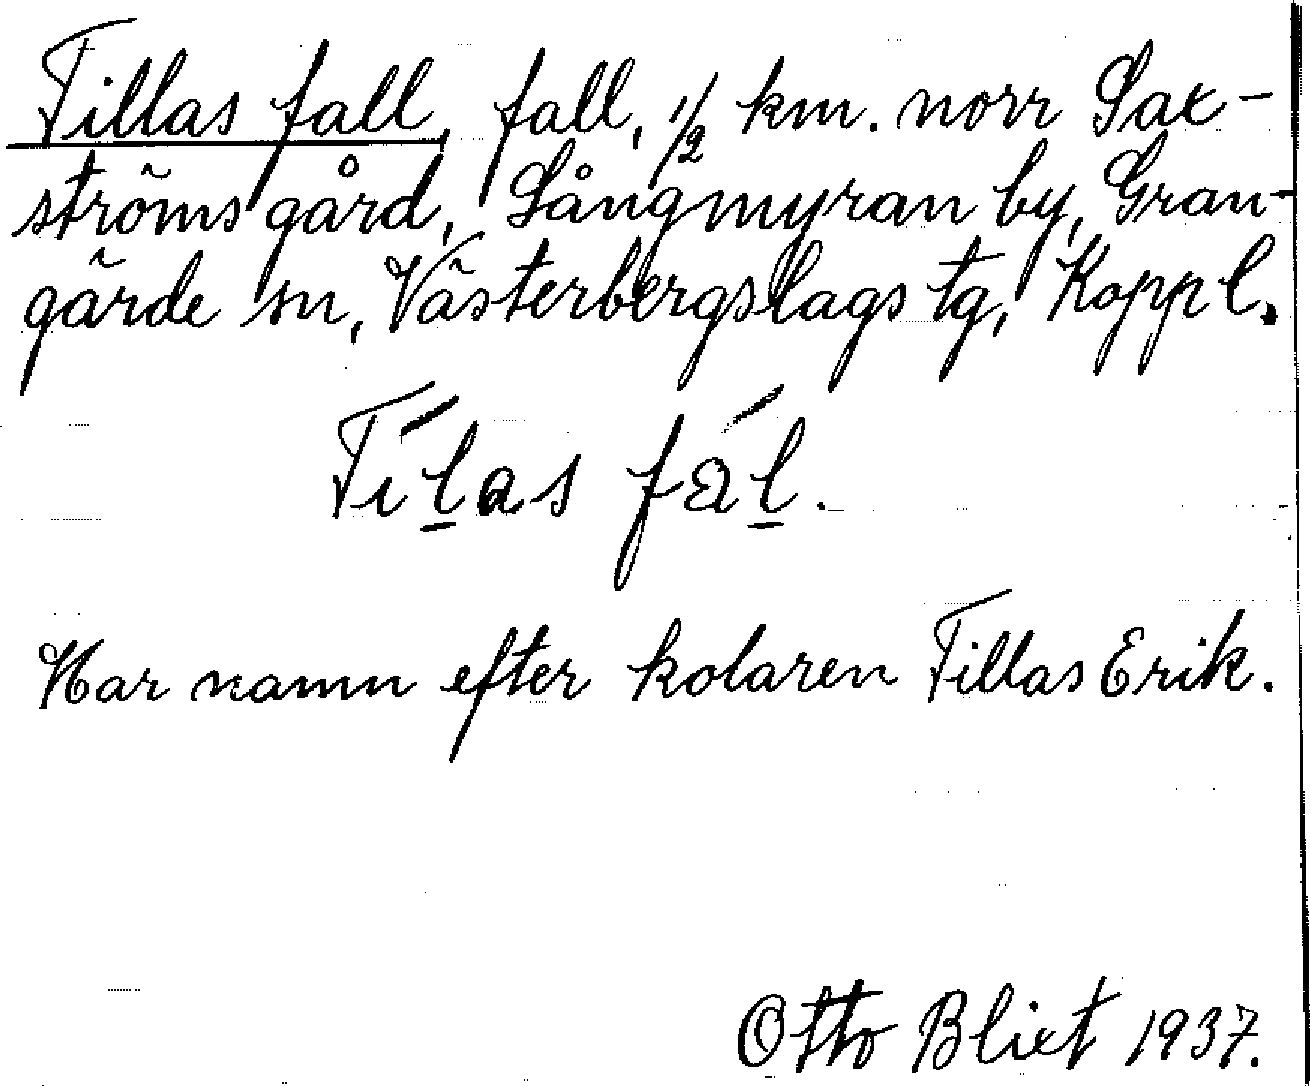 Tillas fall, fall, 1/2 km. norr Sax-
ströms gård, Långmyran by, Gran-
gärde sn, Västerbergslags tg, Koppl.
Tílas fál.
Har namn efter kolaren Tillas Erik.
Otto Blixt 1937.